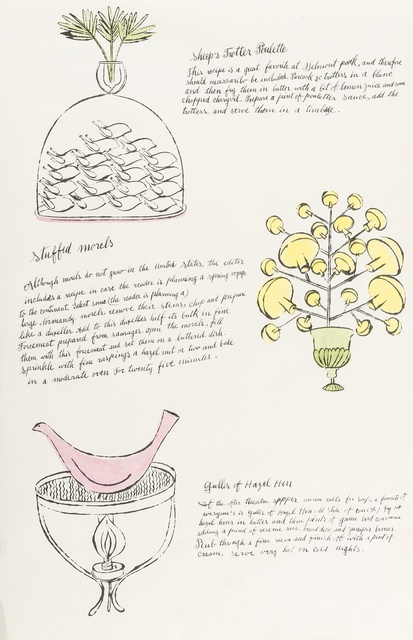 Sheep's Trotter Poulette
This recipe is a great favorite at Belmont park, and therefore
should necessarily be included. Parcook 20 trotters in a blanc
and then fry them in butter with a bit of lemon juice and some
chopped chervil. Prepare a pint of poulette sauce, add the
trotters and serve them in a timbale.
Stuffed morels
Although morels do not grow in the United States, the editor
includes a recipe in case the reader is planning a spring voyage
to the continent. Select some (the reader is planning a)
large Normandy morels, remove their stems, chop and prepare
like a duxelles. Add to this duxelles half its bulk in fine
forcement prepared from sausages, open the morels, fill
them with this forcement and set them on a buttered dish
sprinkle with fine raspings a hazel nut or two and bake
in a moderate oven for twenty five minutes.
Gulls of Hazel Hen
At the after theatre supper calls for soup, a favorite of
everyone's is Gulls of Hazel Hen
hazel hens in butter and three pints of game
adding a pound of
Rub through a fine sieve and finish it with a pint of
cream, serve very hot on cold nights.